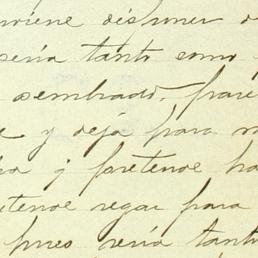 viene disponer d
seria tanto como
sembrado, pare
e y deja para
ha y pretende ha
tende regar para
pues seria tanto